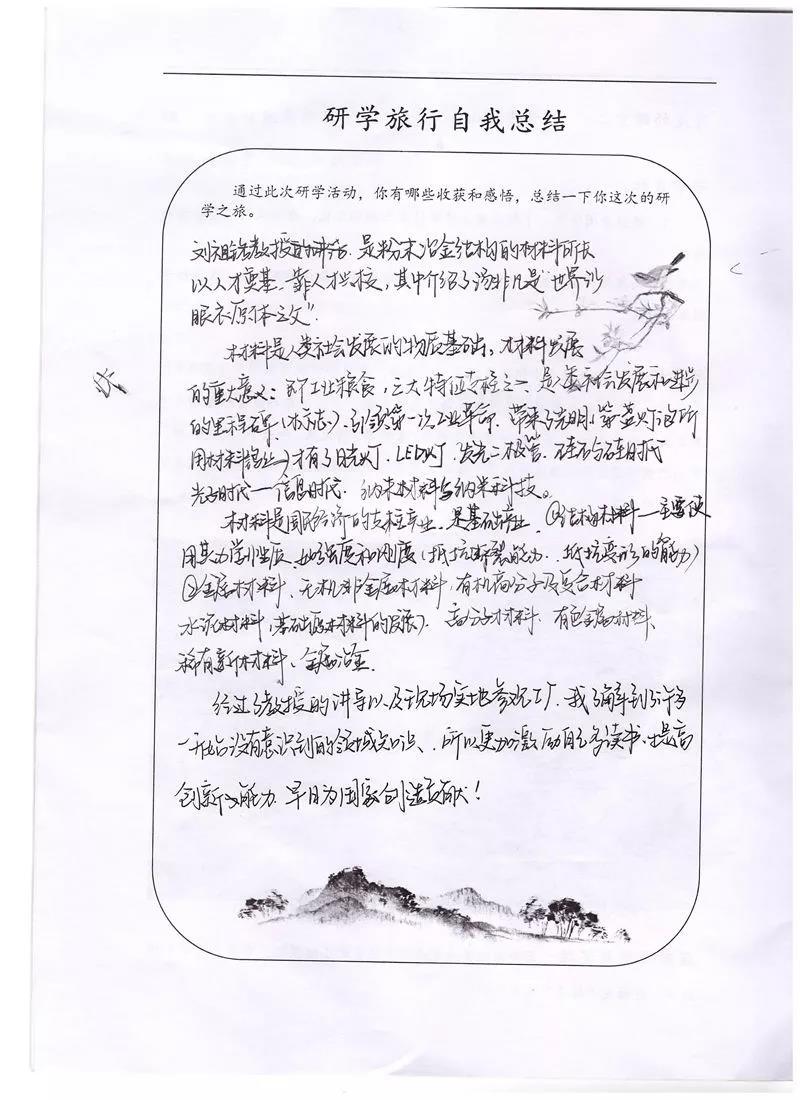 研学旅行自我总结
通过此次研学活动，你有哪些收获和感悟，总结一下你这次的研
学之旅。
刘祖铭教授的讲话．是粉末冶金结构的材料所长
以人才奠基．靠人才兴校，其中介绍了汤非凡是“世界沙
眼衣原体之父”．
材料是人类社会发展的物质基础，材料发展
的重大意义：工业粮食，三大特征支柱之一．是社会发展和进步
的里程碑．（标志）、引领第一次工业革命．带来了光明，
用材料 才有了日光灯．LED灯．发光二极管．硅石与硅时代
光子时代—信息时代．纳米材料与纳米科技。
材料是国民经济的支柱产业．是基础产业．①结构材料—主要使
用其力学性质．如强度和刚度（抵抗断裂能力．抵抗变形的能力）
②金属材料．无机非金属材料，有机高分子及复合材料
水泥材料，（基础原材料的）．高分子材料．有色金属材料、
稀有新材料、金属冶金．
经过了教授的讲导以及现场实地参观工厂．我了解到了许多
一开始没有意识到的领域知识、所以更加激励自己多读书、提高
创新能力．早日为国家创造贡献！